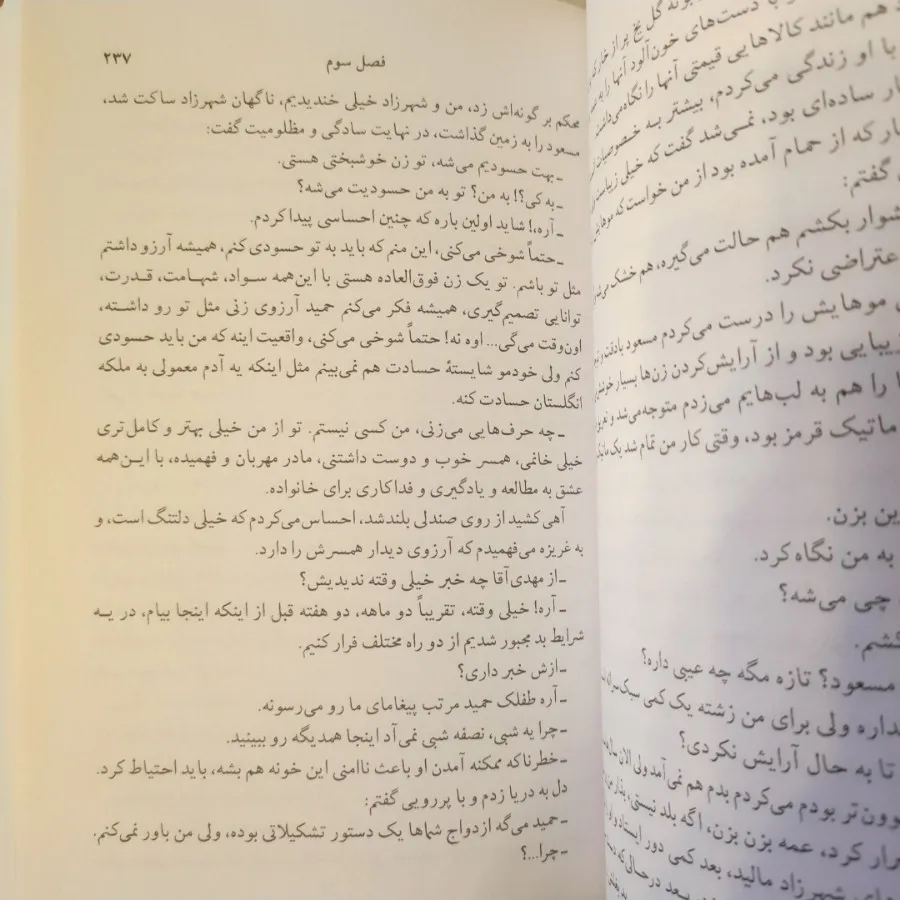 فصل سوم ۲۳۷
محکم بر گونه‌اش زد، من و شهرزاد خیلی خندیدیم، ناگهان شهرزاد ساکت شد،
مسعود را به زمین گذاشت، در نهایت سادگی و مظلومیت گفت:
ـ بهت حسودیم می‌شه، تو زن خوشبختی هستی.
ـ به کی؟! به من؟ تو به من حسودیت می‌شه؟
ـ آره،! شاید اولین باره که چنین احساسی پیدا کردم.
ـ حتماً شوخی می‌کنی، این منم که باید به تو حسودی کنم، همیشه آرزو داشتم
مثل تو باشم. تو یک زن فوق‌العاده هستی با این‌همه سواد، شهامت، قدرت،
توانایی تصمیم‌گیری، همیشه فکر می‌کنم حمید آرزوی زنی مثل تو رو داشته،
اون‌وقت می‌گی... اوه نه! حتماً شوخی می‌کنی، واقعیت اینه که من باید حسودی
کنم ولی خودمو شایستهٔ حسادت هم نمی‌بینم مثل اینکه یه آدم معمولی به ملکه
انگلستان حسادت کنه.
ـ چه حرف‌هایی می‌زنی، من کسی نیستم. تو از من خیلی بهتر و کامل‌تری
خیلی خانمی، همسر خوب و دوست داشتنی، مادر مهربان و فهمیده، با این‌همه
عشق به مطالعه و یادگیری و فداکاری برای خانواده.
آهی کشید از روی صندلی بلندشد، احساس می‌کردم که خیلی دلتنگ است، و
به غریزه می‌فهمیدم که آرزوی دیدار همسرش را دارد.
ـ از مهدی‌آقا چه خبر خیلی وقته ندیدیش؟
ـ آره! خیلی وقته، تقریباً دو ماهه، دو هفته قبل از اینکه اینجا بیام، در یه
شرایط بد مجبور شدیم از دو راه مختلف فرار کنیم.
ـ ازش خبر داری؟
ـ آره طفلک حمید مرتب پیغامای ما رو می‌رسونه.
ـ چرا یه شبی، نصفه شبی نمی‌آد اینجا همدیگه رو ببینید.
ـ خطرناکه ممکنه آمدن او باعث ناامنی این خونه هم بشه، باید احتیاط کرد.
دل به دریا زدم و با پررویی گفتم:
ـ حمید می‌گه ازدواج شماها یک دستور تشکیلاتی بوده، ولی من باور نمی‌کنم.
ـ چرا...؟
بوته گل یخ پر از خار
با دست‌های خون‌آلود آنها را به
هم مانند کالاهایی قیمتی آنها را نگاه می‌داشت
با او زندگی می‌کردم، بیشتر به خصوصیات
ساده‌ای بود، نمی‌شد گفت که خیلی زیباست
که از حمام آمده بود از من خواست که موهایش
گفتم:
بکشم هم حالت می‌گیره، هم خشک می‌شه
اعتراضی نکرد.
موهایش را درست می‌کردم مسعود بادقت
بود و از آرایش‌کردن زن‌ها بسیار
را هم به لب‌هایم می‌زدم متوجه می‌شد و
ماتیک قرمز بود، وقتی کار من تمام شد یک
بزن.
به من نگاه کرد.
چی می‌شه؟
مسعود؟ تازه مگه چه عیبی داره؟
ولی برای من زشته یک کمی
تا به حال آرایش نکردی؟
بودم می‌کردم بدم هم نمی‌آمد ولی الان
کرد، عمه بزن بزن، اگه بلد نیستی، بذار
شهرزاد مالید، بعد کمی دور ایستاد و
بعد درحالی‌که